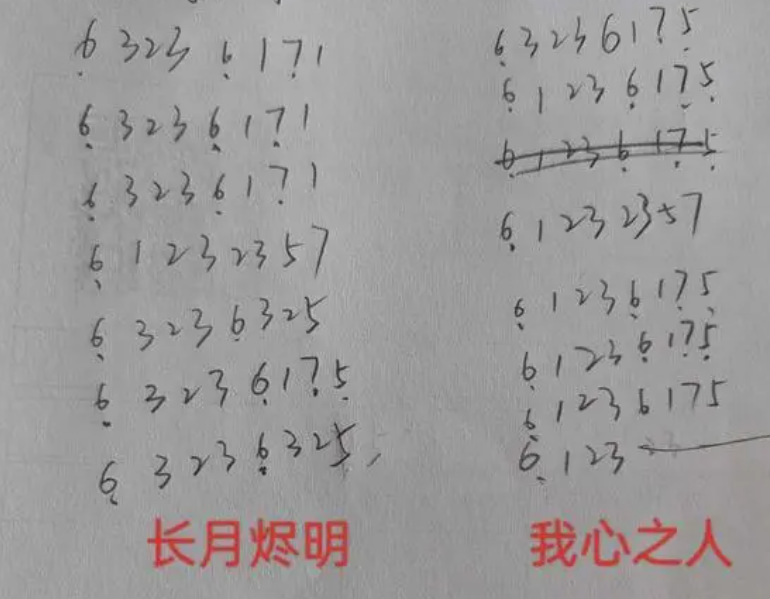 6 3 2 3 6 1 7 1
6 3 2 3 6 1 7 1
6 3 2 3 6 1 7 1
6 1 2 3 2 3 5 7
6 3 2 3 6 3 2 5
6 3 2 3 6 1 7 5
6 3 2 3 6 3 2 5
长月烬明
6 3 2 3 6 1 7 5
6 1 2 3 6 1 7 5
6 1 2 3 6 1 7 5
6 1 2 3 2 3 5 7
6 1 2 3 6 1 7 5
6 1 2 3 6 1 7 5
6 1 2 3 6 1 7 5
6 1 2 3
我心之人